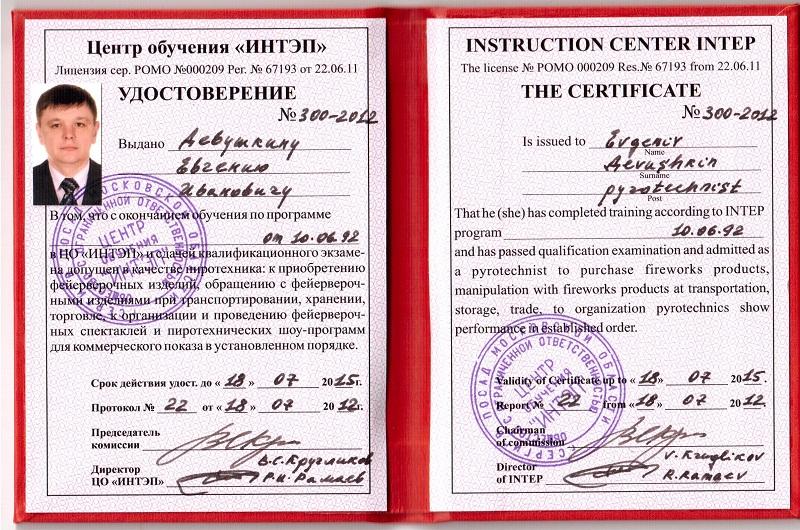 Центр обучения «ИНТЭП»
Лицензия сер. РОМО №000209 Рег. № 67193 от 22.06.11
УДОСТОВЕРЕНИЕ
№ 300-2012
Выдано Девушкину
Евгению
Ивановичу
В том, что с окончанием обучения по программе
от 10.06.92
в ЦО «ИНТЭП» и сдачей квалификационного экзаме-
на допущен в качестве пиротехника: к приобретению
фейерверочных изделий, обращению с фейервероч-
ными изделиями при транспортировании, хранении,
торговле, к организации и проведению фейервероч-
ных спектаклей и пиротехнических шоу-программ
для коммерческого показа в установленном порядке.
Срок действия удост. до «18» 07 2015г.
Протокол № 22 от «18» 07 2012г.
Председатель
комиссии
В.С. Кругликов
Директор
ЦО «ИНТЭП»
Р.И. Рамаев
МОСКОВСКОЙ
ОГРАНИЧЕННОЙ ОТВЕТСТВЕННОСТЬЮ
ЦЕНТР
обучения
"ИНТЭП"
INSTRUCTION CENTER INTEP
The license № РОМО 000209 Res.№ 67193 from 22.06.11
THE CERTIFICATE
№ 300-2012
Is issued to Evgeniy
Name
Devushkin
Surname
pyrotechnist
Post
That he (she) has completed training according to INTEP
program 10.06.92
and has passed qualification examination and admitted as
a pyrotechnist to purchase fireworks products,
manipulation with fireworks products at transportation,
storage, trade, to organization pyrotechnics show
performance in established order.
Validity of Certificate up to «18» 07 2015.
Report № 22 from «18» 07 2012.
Chairman
of commission
V. Kruglikov
Director
of INTEP
R. Ramaev
СЕРГИЕВ ПОСАД МОСКОВСКОЙ ОБЛАСТИ
ОГРАНИЧЕННОЙ ОТВЕТСТВЕННОСТЬЮ
ЦЕНТР
обучения
"ИНТЭП"